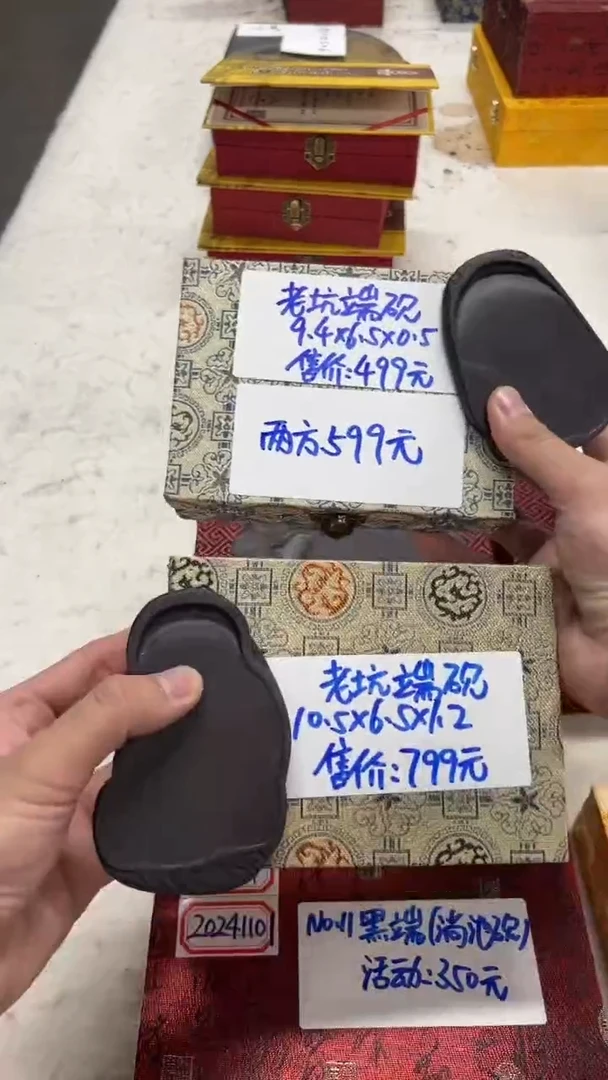 老坑端砚
9.4×6.5×0.5
售价:499元
两方599元
老坑端砚
10.5×6.5×1.2
售价:799元
2024110
No.11 黑端(淌池砚)
活动:350元